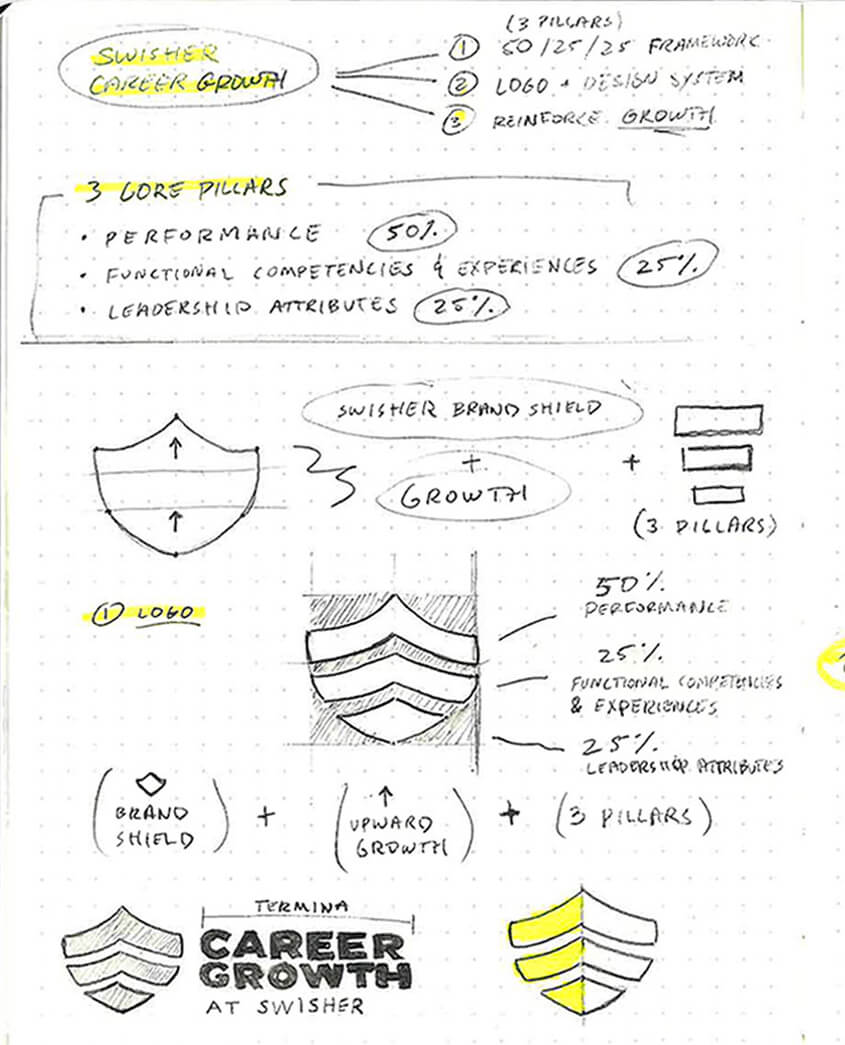 SWISHER
CAREER GROWTH
(3 PILLARS)
1 50/25/25 FRAMEWORK
2 LOGO + DESIGN SYSTEM
3 REINFORCE GROWTH
3 CORE PILLARS
• PERFORMANCE 50%
• FUNCTIONAL COMPETENCIES & EXPERIENCES 25%
• LEADERSHIP ATTRIBUTES 25%
SWISHER BRAND SHIELD
+
GROWTH
+
(3 PILLARS)
1 LOGO
50%
PERFORMANCE
25%
FUNCTIONAL COMPETENCIES
& EXPERIENCES
25%
LEADERSHIP ATTRIBUTES
(BRAND SHIELD) + (UPWARD GROWTH) + (3 PILLARS)
TERMINA
CAREER
GROWTH
AT SWISHER